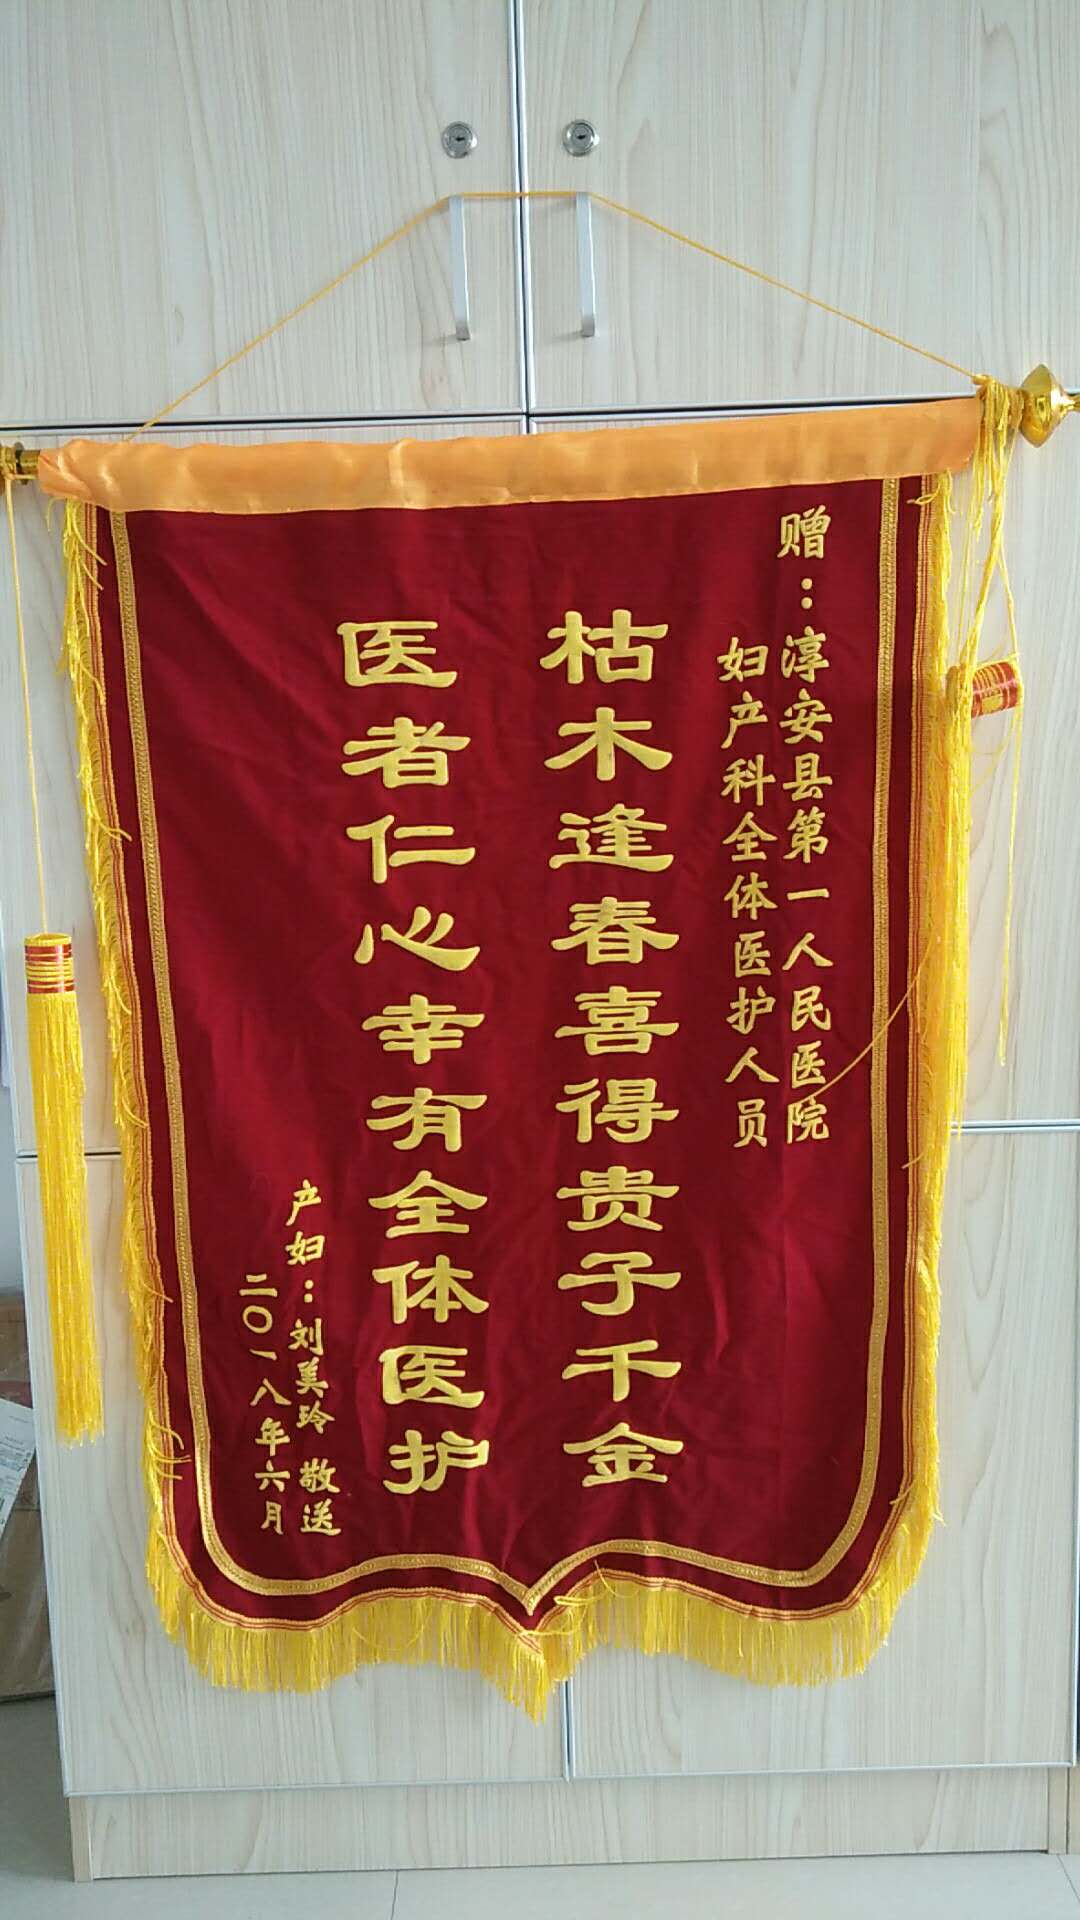 赠：淳安县第一人民医院
妇产科全体医护人员
枯木逢春喜得贵子千金
医者仁心幸有全体医护
产妇：刘美玲 敬送
二〇一八年六月